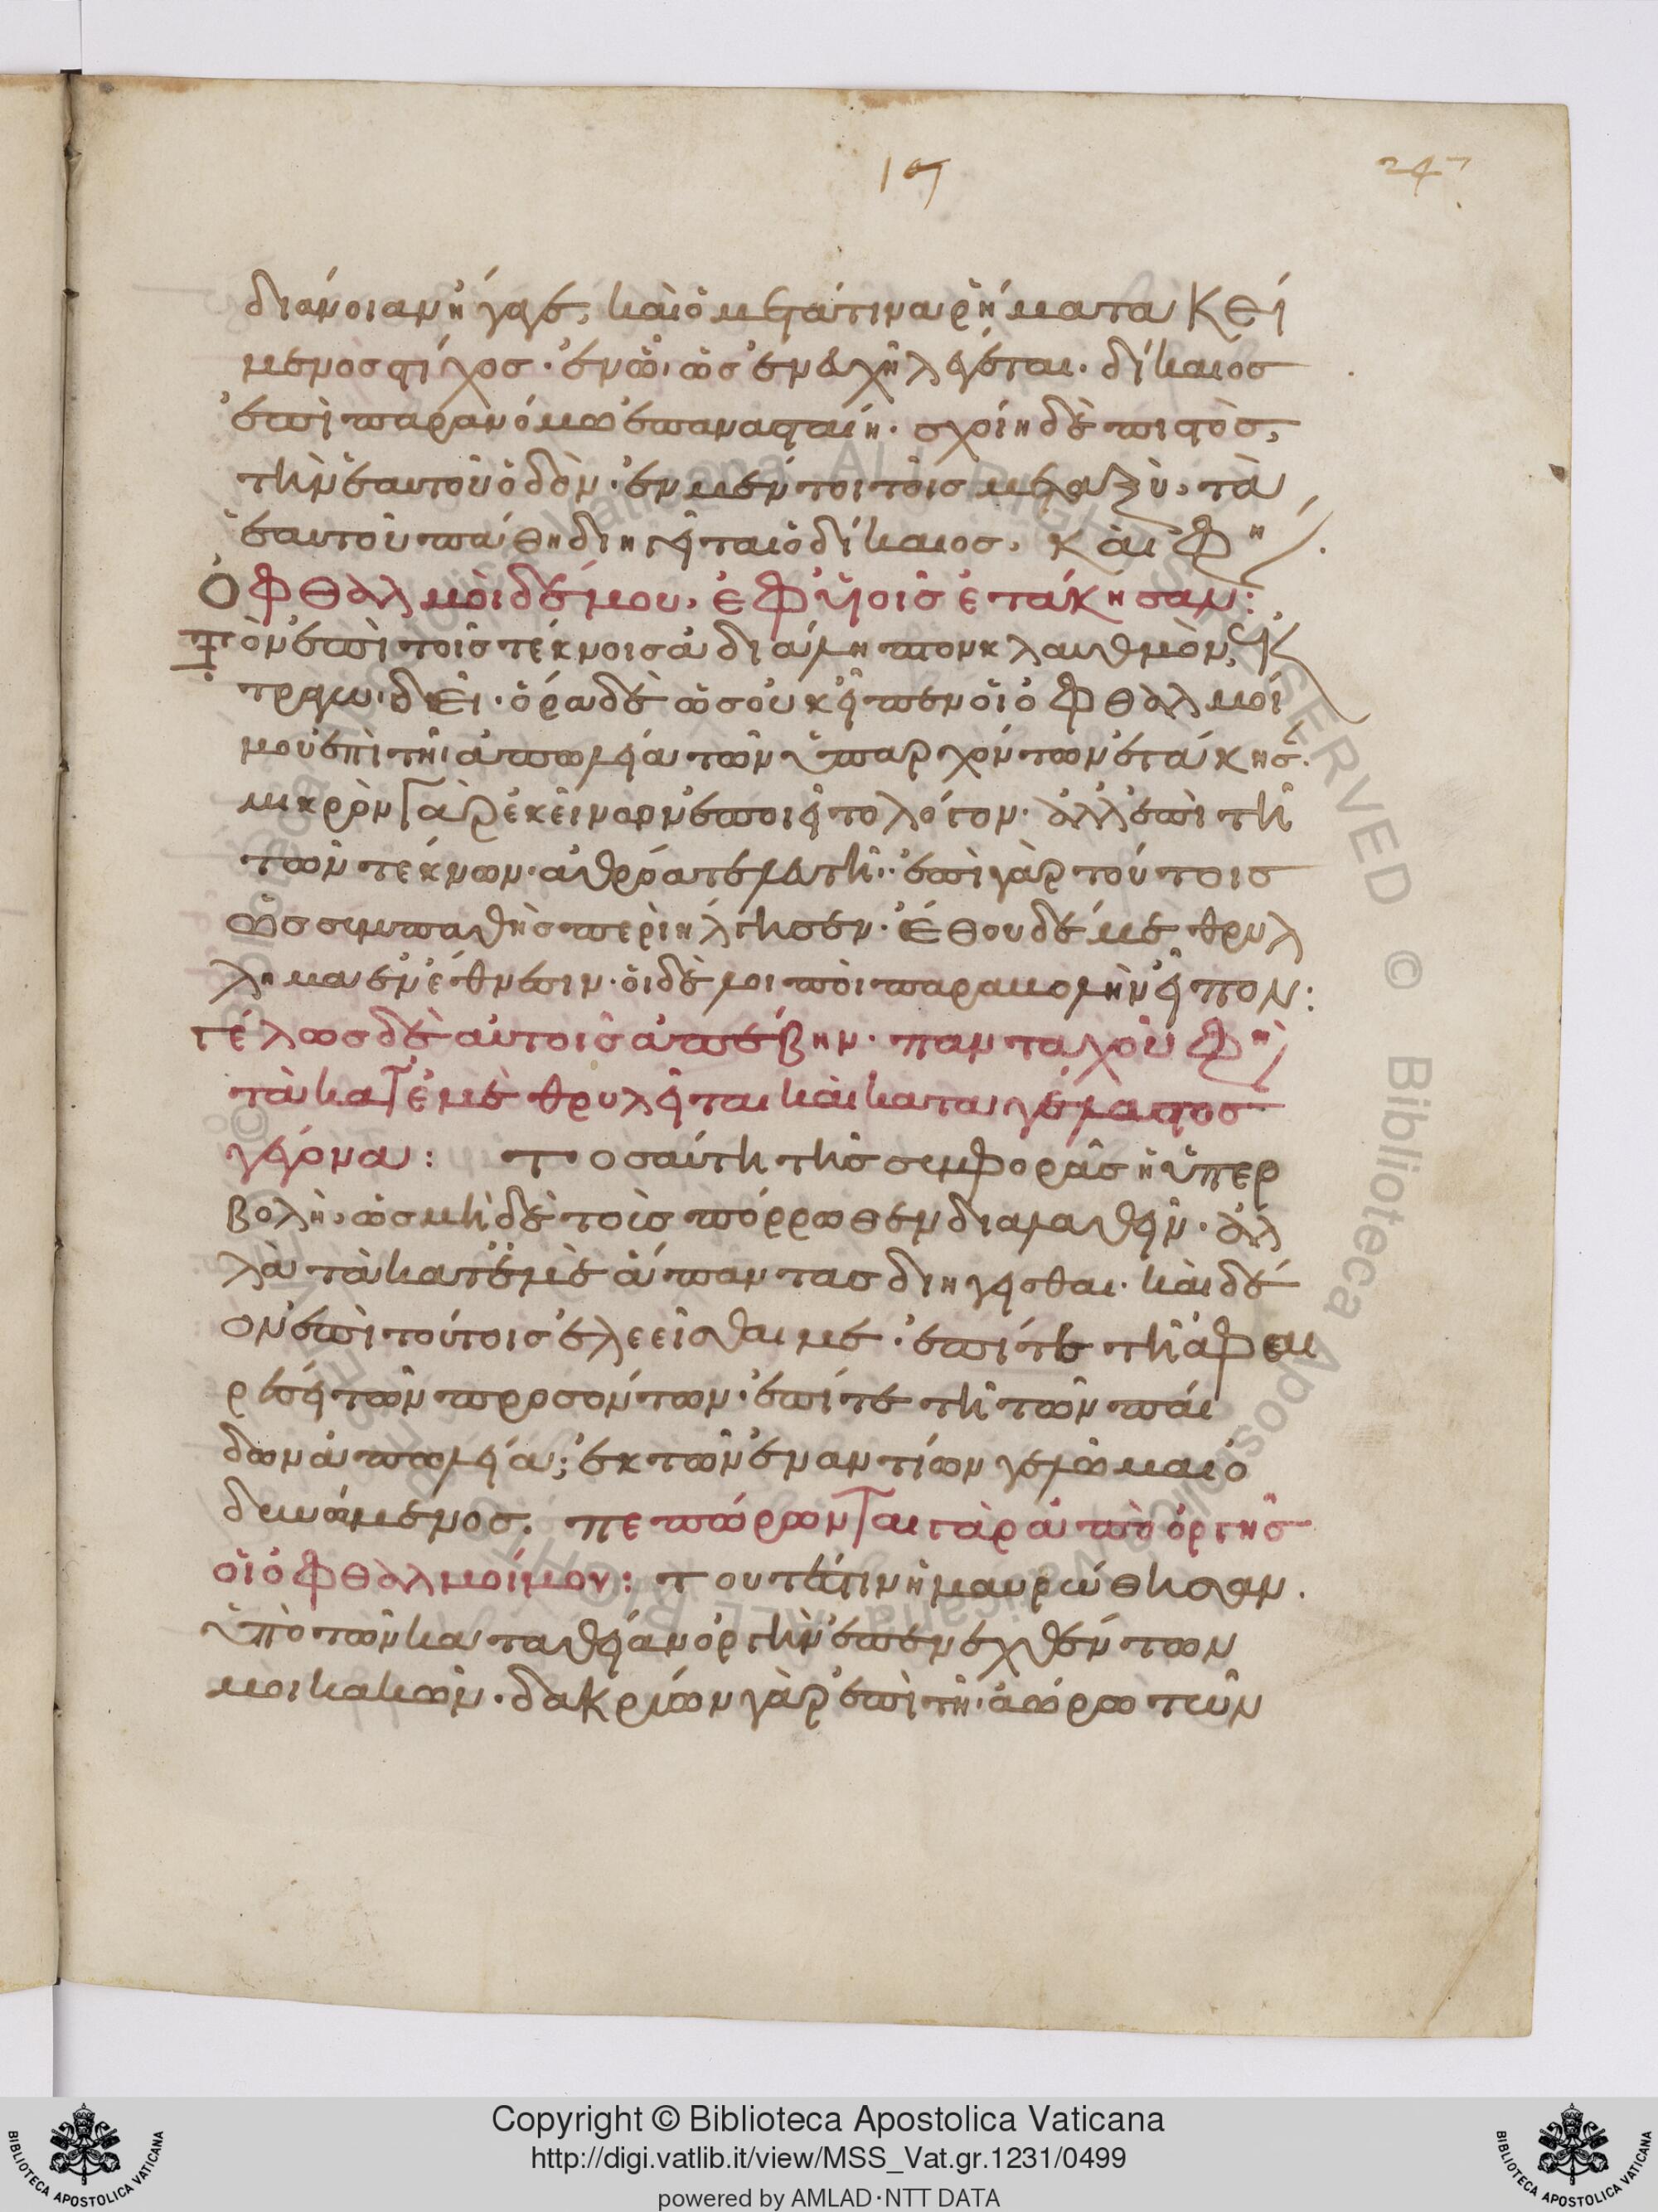 197
247
διάνοιαν ἤγαγε, καὶ ὁ μετά τινα ῥήματα κεί
μενος στίχος· ἐν ᾧ, ὡς ἐν εὐχῇ λέγεται· δίκαιος
ἐπὶ παρανόμῳ ἐπανασταίη· σχοίη δὲ πιστὸς,
τὴν ἑαυτοῦ ὁδὸν· ἐν μέντοι τοῖς μεταξὺ, τὰ
ἑαυτοῦ πάθη διηγεῖται ὁ δίκαιος, καί φη
Ὀφθαλμοὶ δέ μου, ἐφ υἱοῖς ἐτάκησαν:
τὸν ἐπὶ τοῖς τέκνοις ἀδιάλειπτον κλαυθμὸν, ἐκ
τραγωδεῖ· ὅρα δὲ ὡς οὐκ εἶπεν οἱ ὀφθαλμοί
μου ἐπὶ τῆι ἀπωλεία τῶν ὑπαρχόντων ἐτάκησ
μικρὸν γὰρ ἐκείνων ἐποιεῖτο λόγον· ἀλλ ἐπὶ τῆ
τῶν τέκνων ἀθρόα τελευτῆ· ἐπὶ γὰρ τούτοις
ὡς συμπαθὴς περιήλγησεν· ἔθου δέ με θρύλ
λημα ἐν ἔθνεσιν· οἱ δέ μοι ποι παρακολ εἶπον:
γέλως δὲ αὐτοῖς ἀπέβην· πανταχοῦ φη
τὰ κατ ἐμὲ θρυλεῖται καὶ καταγέλαστος
γέγονα: τοσαύτη τῆς συμφορᾶς ἡ ὑπερ
βολὴ, ὡς μὴ δὲ τοῖς πόρρωθεν διαλαθεῖν· ἀλ
λὰ τὰ κατ ἐμὲ ἅπαντας διηγεῖσθαι· καὶ δέ
ον ἐπὶ τούτοις ἐλεεῖσθαι με· ἐπί τε τῆ ἀφαι
ρέσει τῶν προσόντων· ἐπί τε τῆ τῶν παί
δων ἀπωλεία; ἐκ τῶν ἐναντίων γελῶμαι ὁ
δεινάμενος· πεπώρωνται γὰρ ἀπὸ ὀργῆς
οἱ ὀφθαλμοί μου: τουτέστιν ἡμαυρώθησαν.
ὑπὸ τῶν κατὰ θείαν ὀργὴν ἐπενεχθέντων
μοι κακῶν· δακρύων γὰρ ἐπὶ τῆ ἀώρω τῶν
Copyright © Biblioteca Apostolica Vaticana
http://digi.vatlib.it/view/MSS_Vat.gr.1231/0499
powered by AMLAD·NTT DATA
BIBLIOTECA APOSTOLICA VATICANA
BIBLIOTECA APOSTOLICA VATICANA